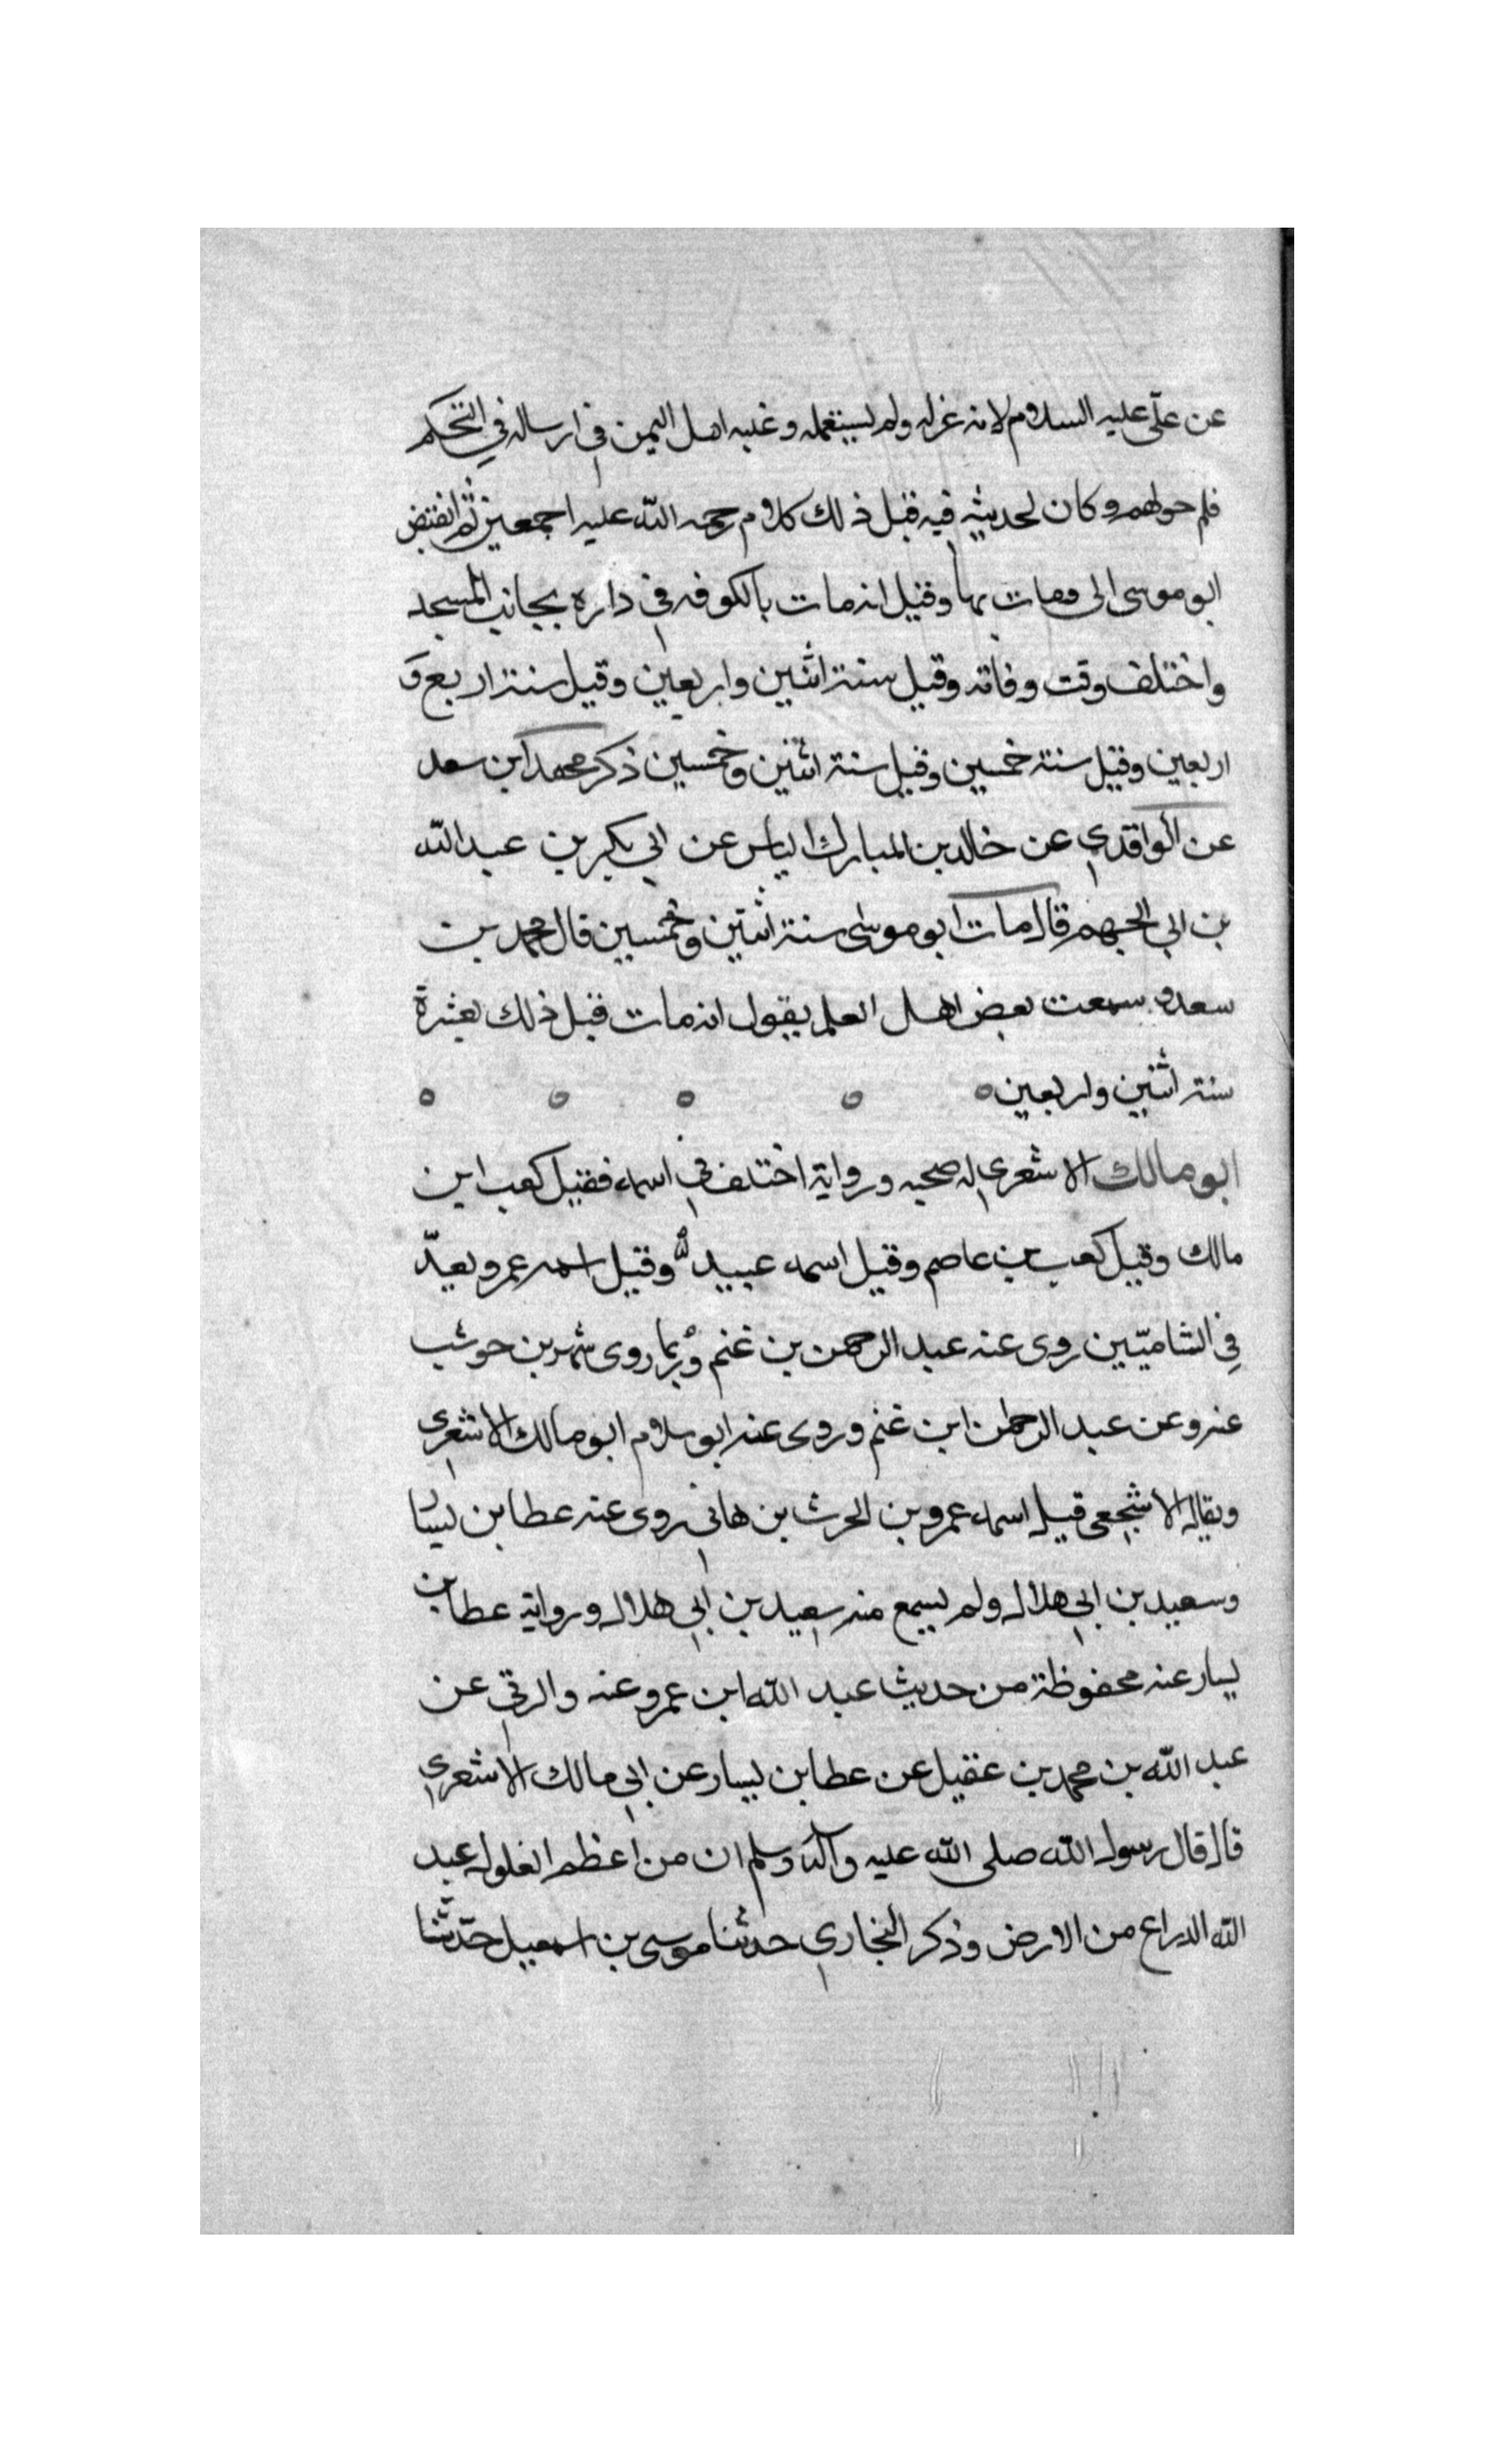 عن علّى عليه السلام لانه عزله ولم يستعمله وغلبه اهل اليمن في ارساله في التحكم
فلم حولهم وكان لحديثه فيه قبل ذلك كلام رحمه الله عليه اجمعين ثم انقبض
ابو موسى الى ومات بها وقيل انه مات بالكوفه في داره بجانب المسجد
واختلف وقت وفاته وقيل سنة اثنين واربعين وقيل سنة اربع و
اربعين وقيل سنة خمسين وقيل سنة اثنين وخمسين ذكر محمد ابن سعد
عن الواقدي عن خالد بن المبارك الياس عن ابي بكر بن عبد الله
بن ابي الجهم قال مات ابو موسى سنة اثنتين وخمسين قال محمد بن
سعد و سمعت بعض اهل العلم يقول انه مات قبل ذلك بعشرة
سنة اثنين واربعين
ابو مالك الاشعري له صحبه ورواية اختلف في اسمه فقيل كعب ابن
مالك وقيل كعب بن عاصم وقيل اسمه عبيد الله وقيل اسمه عمرو يعدّ
في الشاميّين روى عنه عبد الرحمن بن غنم وربما روى شهر بن حوشب
عنه وعن عبد الرحمن ابن غنم وروى عنه ابو سلام ابو مالك الاشعري
ويقال الاشجعى قيل اسمه عمرو بن الحرث بن هاني روى عنه عطا بن يسا
وسعيد بن ابي هلال ولم يسمع منه سعيد بن ابي هلال ورواية عطا بن
يسار عنه محفوظة من حديث عبد الله ابن عمرو عنه والرقي عن
عبد الله بن محمد بن عقيل عن عطا بن يسار عن ابي مالك الاشعري
قال قال رسول الله صلى الله عليه وآله وسلم ان من اعظم الغلول عبد
الله الذراع من الارض وذكر البخاري حدثنا موسى بن اسمعيل حدّثنا